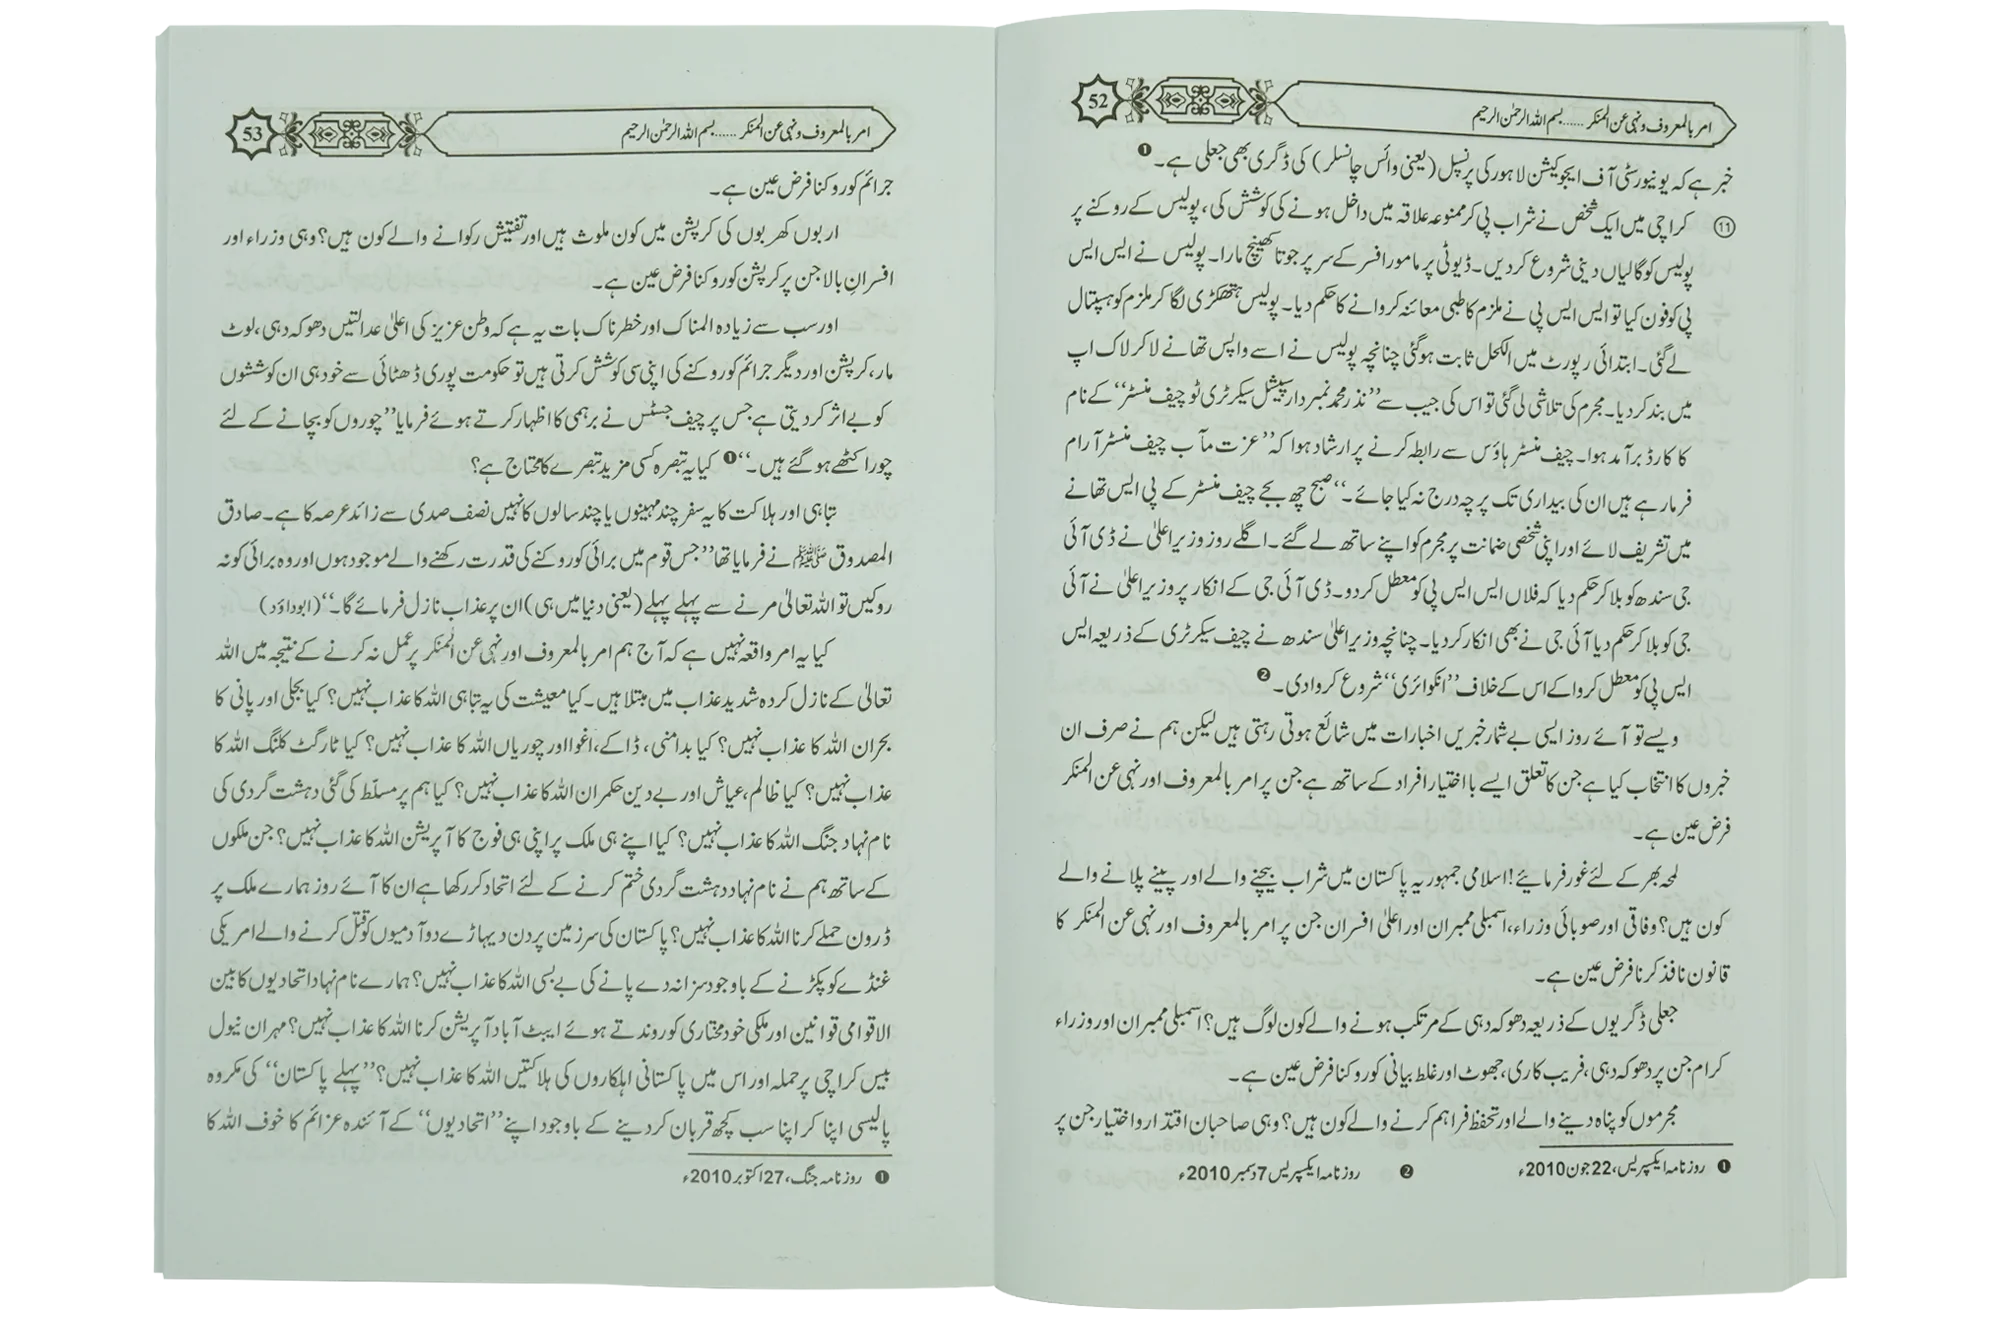 امر بالمعروف ونہی عن المنکر ...... بسم اللہ الرحمٰن الرحیم
52
خبر ہے کہ یونیورسٹی آف ایجوکیشن لاہور کی پرنسپل (یعنی وائس چانسلر) کی ڈگری بھی جعلی ہے۔❶
⑪ کراچی میں ایک شخص نے شراب پی کر ممنوعہ علاقہ میں داخل ہونے کی کوشش کی، پولیس کے روکنے پر
پولیس کو گالیاں دینی شروع کردیں۔ ڈیوٹی پر مامور افسر کے سر پر جوتا کھینچ مارا۔ پولیس نے ایس ایس
پی کو فون کیا تو ایس ایس پی نے ملزم کا طبی معائنہ کروانے کا حکم دیا۔ پولیس ہتھکڑی لگا کر ملزم کو ہسپتال
لے گئی۔ ابتدائی رپورٹ میں الکحل ثابت ہوگئی چنانچہ پولیس نے اسے واپس تھانے لا کر لاک اپ
میں بند کردیا۔ مجرم کی تلاشی لی گئی تو اس کی جیب سے ’’نذر محمد نمبردار سپیشل سیکرٹری ٹو چیف منسٹر‘‘ کے نام
کا کارڈ برآمد ہوا۔ چیف منسٹر ہاؤس سے رابطہ کرنے پر ارشاد ہوا کہ ’’عزت مآب چیف منسٹر آرام
فرمارہے ہیں ان کی بیداری تک پرچہ درج نہ کیا جائے۔‘‘ صبح چھ بجے چیف منسٹر کے پی ایس تھانے
میں تشریف لائے اور اپنی شخصی ضمانت پر مجرم کو اپنے ساتھ لے گئے۔ اگلے روز وزیراعلیٰ نے ڈی آئی
جی سندھ کو بلا کر حکم دیا کہ فلاں ایس ایس پی کو معطل کردو۔ ڈی آئی جی کے انکار پر وزیراعلیٰ نے آئی
جی کو بلا کر حکم دیا آئی جی نے بھی انکار کردیا۔ چنانچہ وزیراعلیٰ سندھ نے چیف سیکرٹری کے ذریعہ ایس
ایس پی کو معطل کروا کے اس کے خلاف ’’انکوائری‘‘ شروع کروادی۔❷
ویسے تو آئے روز ایسی بے شمار خبریں اخبارات میں شائع ہوتی رہتی ہیں لیکن ہم نے صرف ان
خبروں کا انتخاب کیا ہے جن کا تعلق ایسے بااختیار افراد کے ساتھ ہے جن پر امر بالمعروف اور نہی عن المنکر
فرض عین ہے۔
لمحہ بھر کے لئے غور فرمائیے! اسلامی جمہوریہ پاکستان میں شراب بیچنے والے اور پینے پلانے والے
کون ہیں؟ وفاقی اور صوبائی وزراء، اسمبلی ممبران اور اعلیٰ افسران جن پر امر بالمعروف اور نہی عن المنکر کا
قانون نافذ کرنا فرض عین ہے۔
جعلی ڈگریوں کے ذریعہ دھوکہ دہی کے مرتکب ہونے والے کون لوگ ہیں؟ اسمبلی ممبران اور وزراء
کرام جن پر دھوکہ دہی، فریب کاری، جھوٹ اور غلط بیانی کو روکنا فرض عین ہے۔
مجرموں کو پناہ دینے والے اور تحفظ فراہم کرنے والے کون ہیں؟ وہی صاحبان اقتدار و اختیار جن پر
❶ روزنامہ ایکسپریس، 22 جون 2010ء ❷ روزنامہ ایکسپریس 7 دسمبر 2010ء
امر بالمعروف ونہی عن المنکر ...... بسم اللہ الرحمٰن الرحیم
53
جرائم کو روکنا فرض عین ہے۔
اربوں کھربوں کی کرپشن میں کون ملوث ہیں اور تفتیش رکوانے والے کون ہیں؟ وہی وزراء اور
افسرانِ بالا جن پر کرپشن کو روکنا فرض عین ہے۔
اور سب سے زیادہ المناک اور خطرناک بات یہ ہے کہ وطن عزیز کی اعلیٰ عدالتیں دھوکہ دہی، لوٹ
مار، کرپشن اور دیگر جرائم کو روکنے کی اپنی سی کوشش کرتی ہیں تو حکومت پوری ڈھٹائی سے خود ہی ان کوششوں
کو بے اثر کردیتی ہے جس پر چیف جسٹس نے برہمی کا اظہار کرتے ہوئے فرمایا ’’چوروں کو بچانے کے لئے
چور اکٹھے ہوگئے ہیں۔‘‘❶ کیا یہ تبصرہ کسی مزید تبصرے کا محتاج ہے؟
تباہی اور ہلاکت کا یہ سفر چند مہینوں یا چند سالوں کا نہیں نصف صدی سے زائد عرصہ کا ہے۔ صادق
المصدوق ﷺ نے فرمایا تھا ’’جس قوم میں برائی کو روکنے کی قدرت رکھنے والے موجود ہوں اور وہ برائی کو نہ
روکیں تو اللہ تعالیٰ مرنے سے پہلے پہلے (یعنی دنیا میں ہی) ان پر عذاب نازل فرمائے گا۔‘‘ (ابوداؤد)
کیا یہ امر واقعہ نہیں ہے کہ آج ہم امر بالمعروف اور نہی عن المنکر پر عمل نہ کرنے کے نتیجہ میں اللہ
تعالیٰ کے نازل کردہ شدید عذاب میں مبتلا ہیں۔ کیا معیشت کی یہ تباہی اللہ کا عذاب نہیں؟ کیا بجلی اور پانی کا
بحران اللہ کا عذاب نہیں؟ کیا بدامنی، ڈاکے، اغوا اور چوریاں اللہ کا عذاب نہیں؟ کیا ٹارگٹ کلنگ اللہ کا
عذاب نہیں؟ کیا ظالم، عیاش اور بے دین حکمران اللہ کا عذاب نہیں؟ کیا ہم پر مسلّط کی گئی دہشت گردی کی
نام نہاد جنگ اللہ کا عذاب نہیں؟ کیا اپنے ہی ملک پر اپنی ہی فوج کا آپریشن اللہ کا عذاب نہیں؟ جن ملکوں
کے ساتھ ہم نے نام نہاد دہشت گردی ختم کرنے کے لئے اتحاد کررکھا ہے ان کا آئے روز ہمارے ملک پر
ڈرون حملے کرنا اللہ کا عذاب نہیں؟ پاکستان کی سرزمین پر دن دیہاڑے دو آدمیوں کو قتل کرنے والے امریکی
غنڈے کو پکڑنے کے باوجود سزا نہ دے پانے کی بے بسی اللہ کا عذاب نہیں؟ ہمارے نام نہاد اتحادیوں کا بین
الاقوامی قوانین اور ملکی خودمختاری کو روندتے ہوئے ایبٹ آباد آپریشن کرنا اللہ کا عذاب نہیں؟ مہران نیول
بیس کراچی پر حملہ اور اس میں پاکستانی اہلکاروں کی ہلاکتیں اللہ کا عذاب نہیں؟ ’’پہلے پاکستان‘‘ کی مکروہ
پالیسی اپنا کر اپنا سب کچھ قربان کردینے کے باوجود اپنے ’’اتحادیوں‘‘ کے آئندہ عزائم کا خوف اللہ کا
❶ روزنامہ جنگ، 27 اکتوبر 2010ء